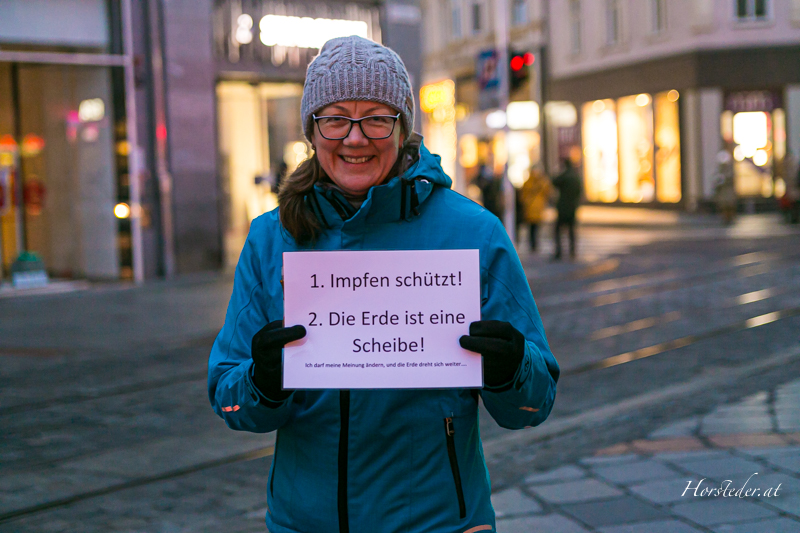 1. Impfen schützt!
2. Die Erde ist eine
Scheibe!
Ich darf meine Meinung ändern, und die Erde dreht sich weiter....
Horsteder.at